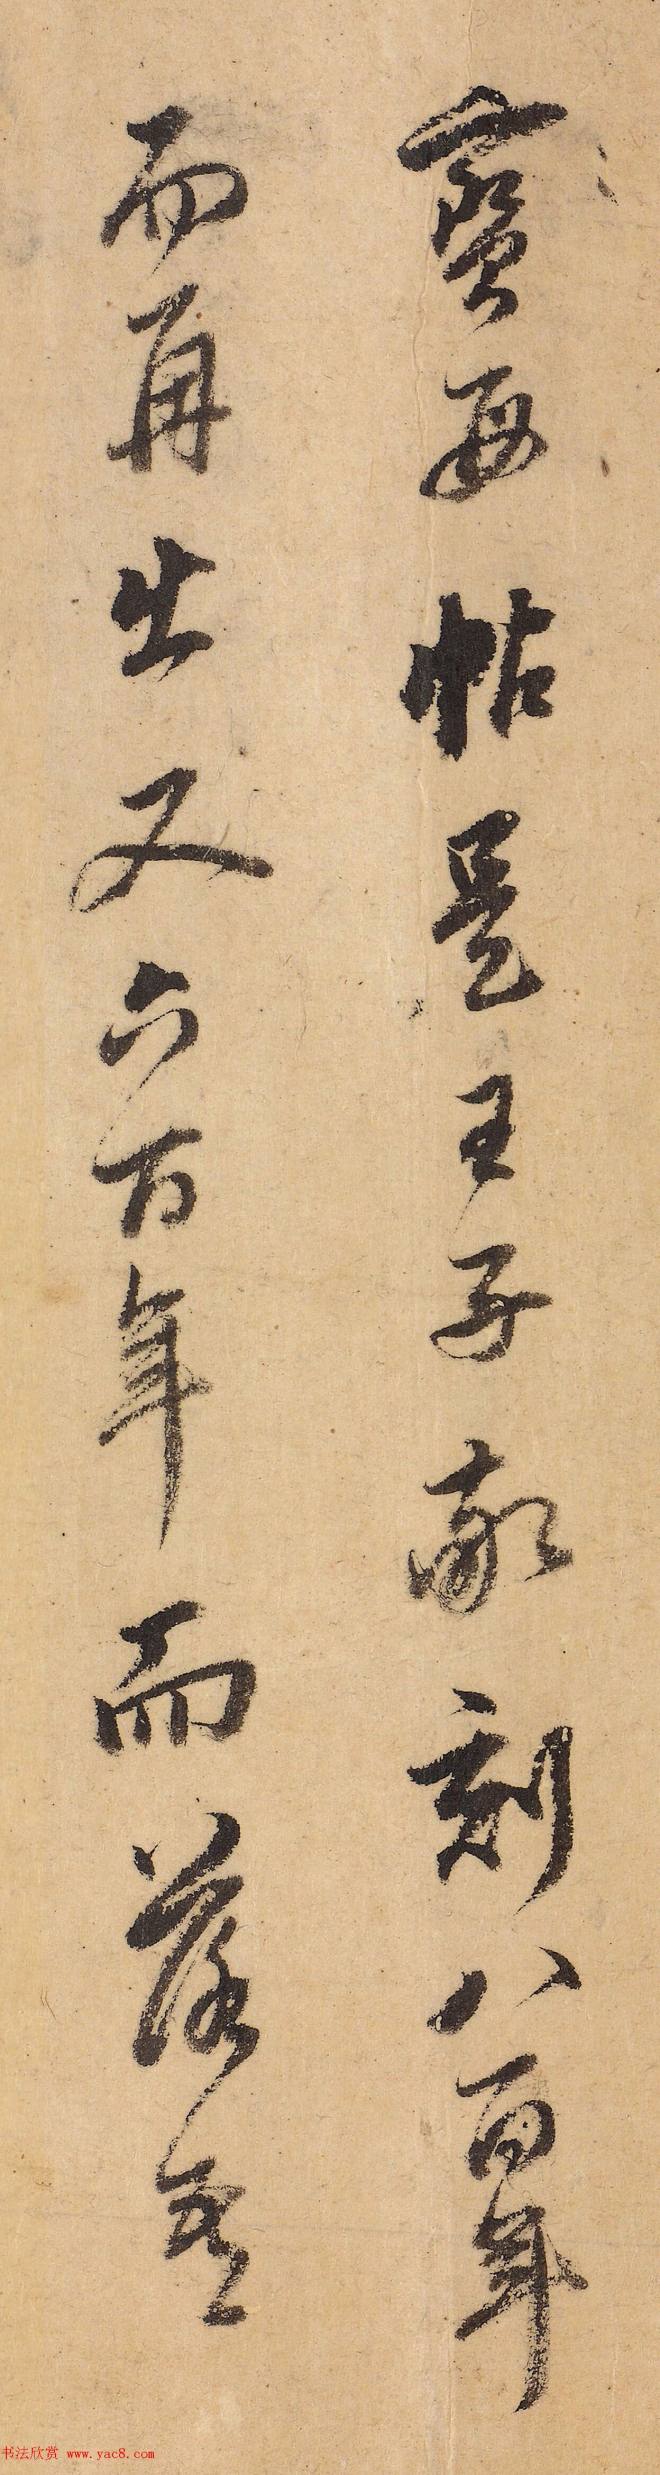 寶母帖是王子敬刻八百年
而再出又六百年而落吾
书法欣赏 www.yac8.com